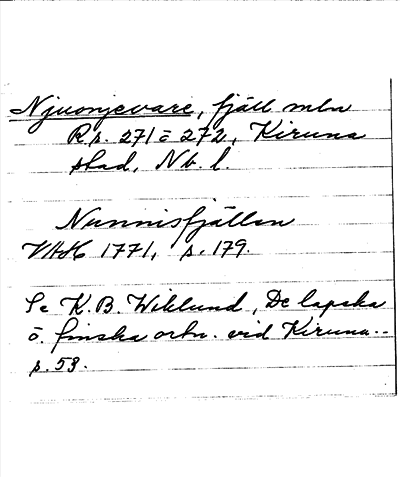 Njuonjevare, fjäll mln
Rs. 271 o 272, Kiruna
stad, Nb. l.
Nunnisfjällen
VAH 1771, s. 179.
Se K. B. Wiklund, De lapska
o. finska ortn. vid Kiruna..
s. 53.